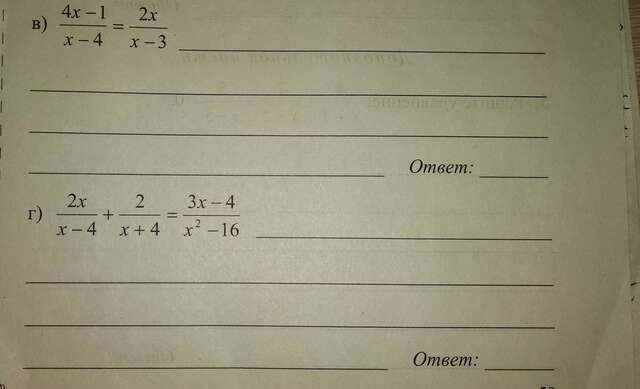 в) (4x − 1)/(x − 4) = 2x/(x − 3)
Ответ:
г) 2x/(x − 4) + 2/(x + 4) = (3x − 4)/(x² − 16)
Ответ: